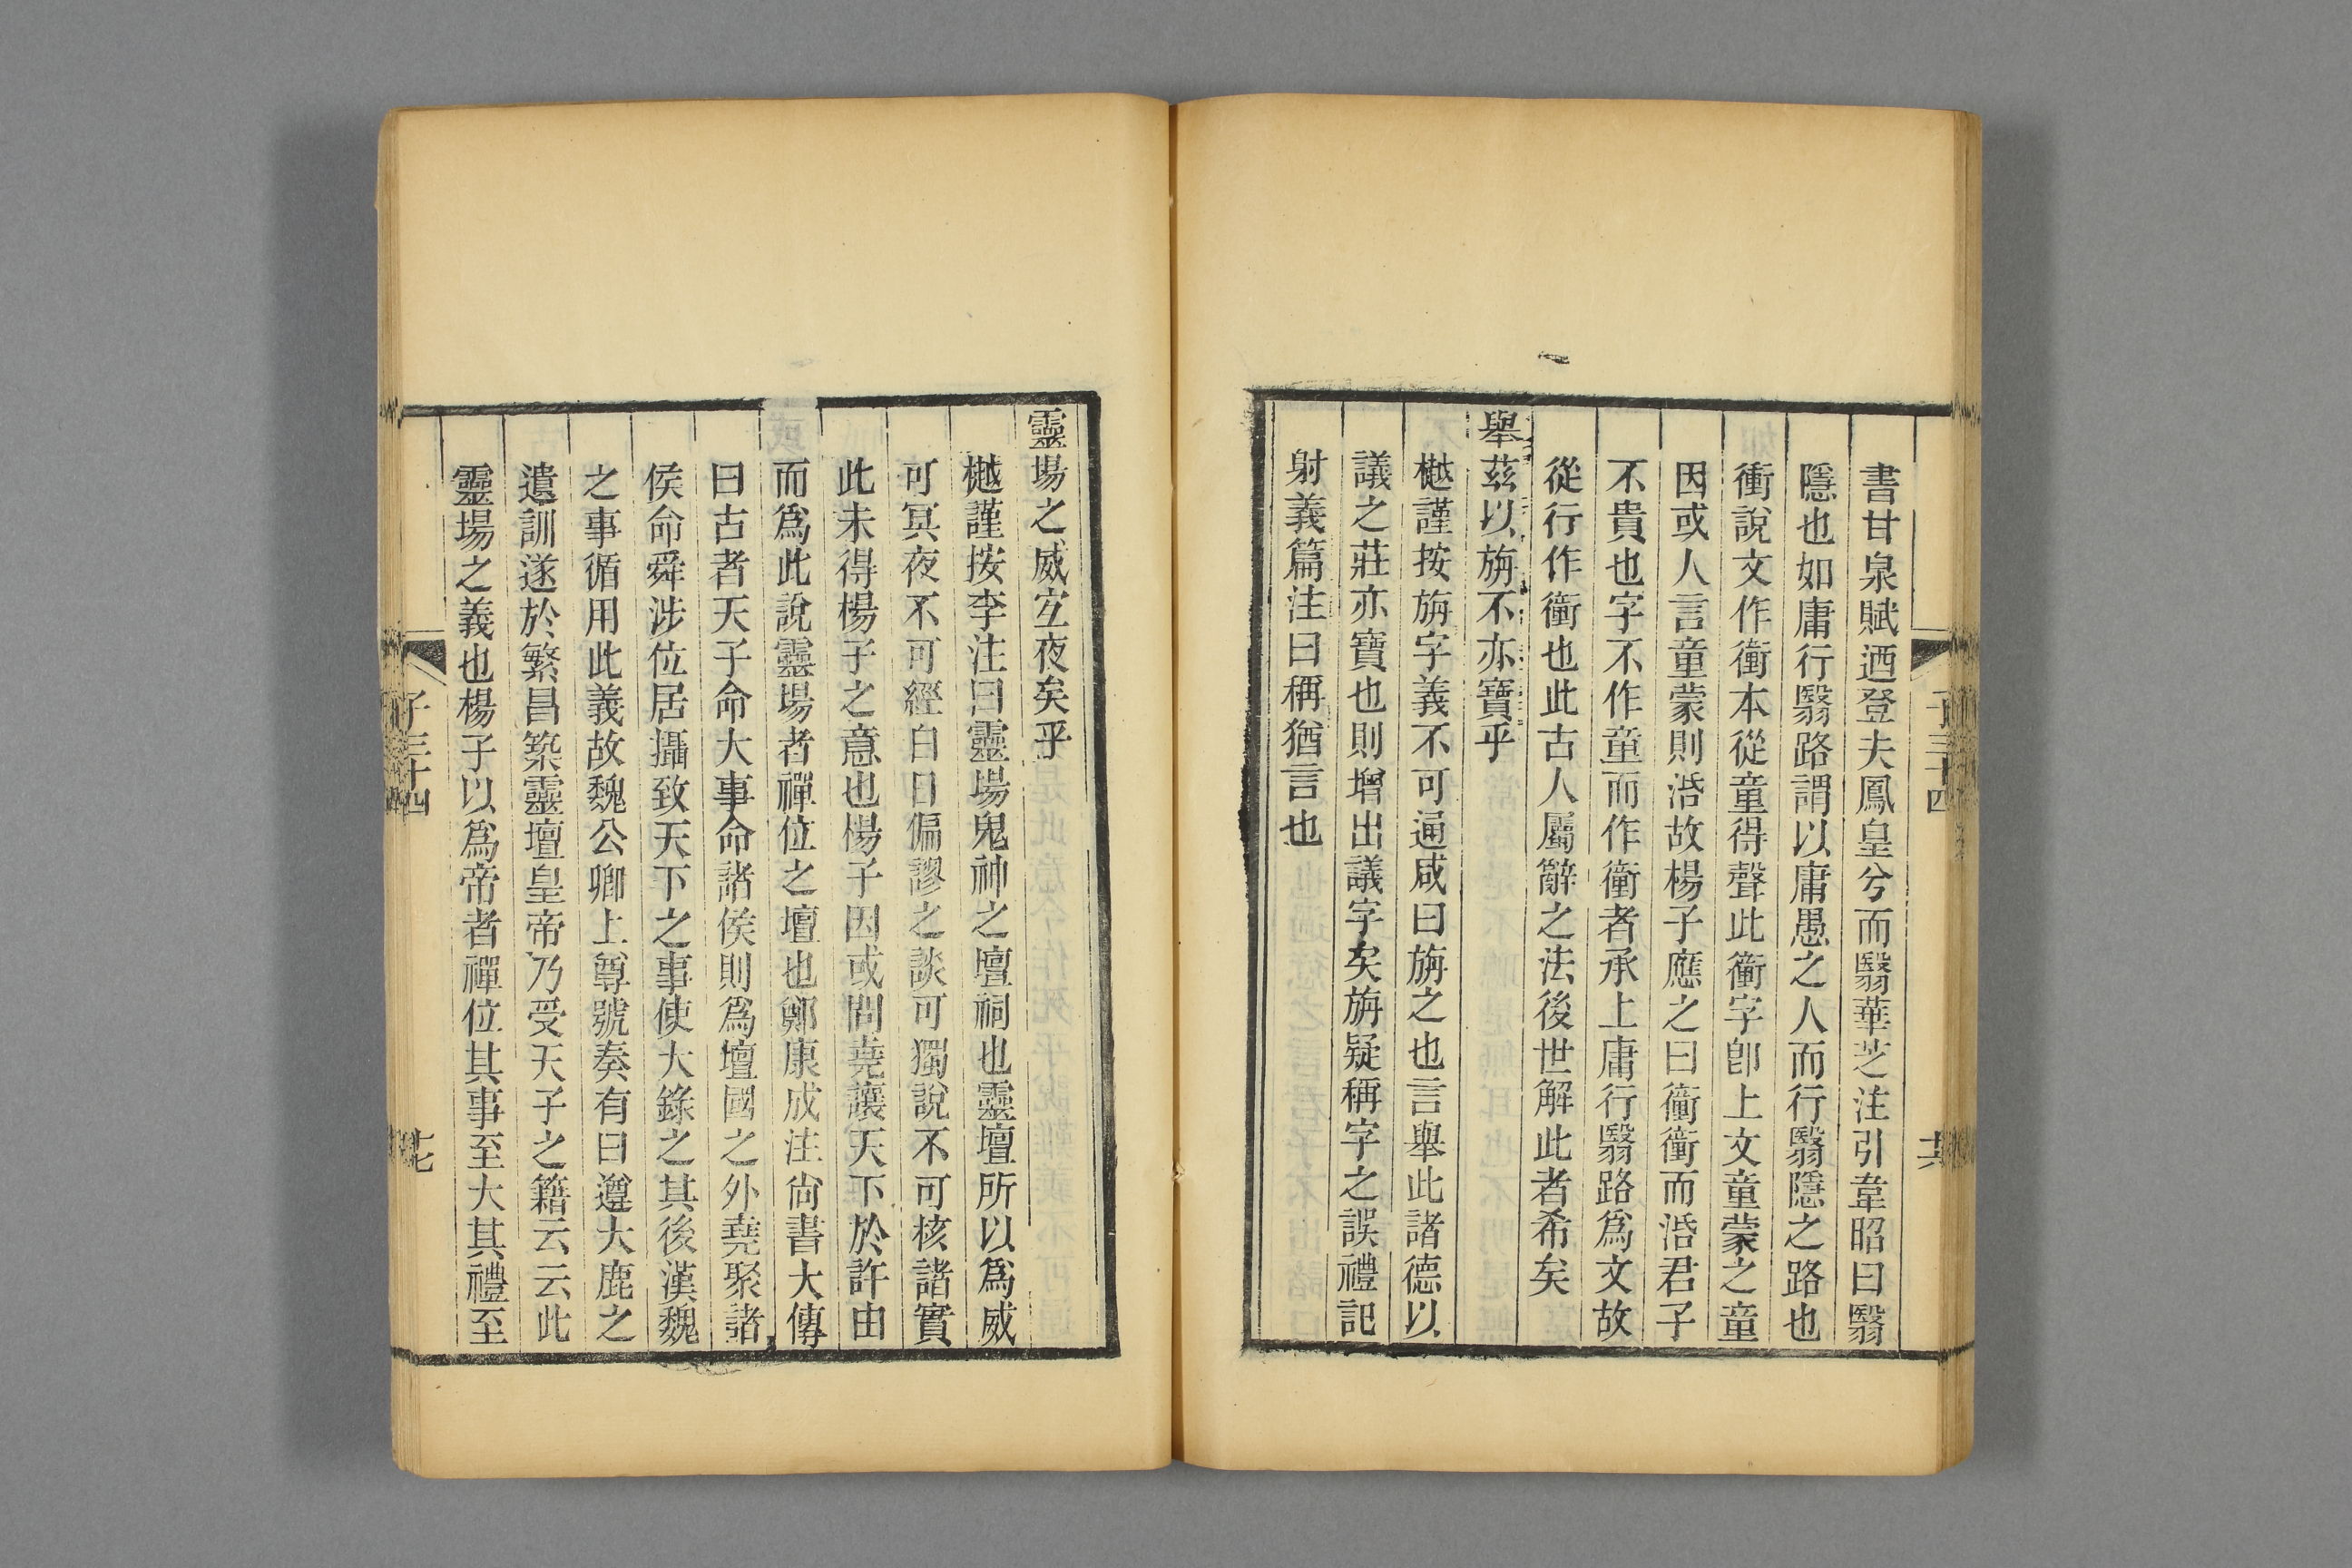 書甘泉賦迺登夫鳳皇兮而翳華芝注引韋昭曰翳
隱也如庸行翳路謂以庸愚之人而行翳隱之路也
衝說文作衝本從童得聲此衝字卽上文童蒙之童
因或人言童蒙則涽故楊子應之曰衝衝而涽君子
不貴也字不作童而作衝者承上庸行翳路爲文故
從行作衝也此古人屬辭之法後世解此者希矣
舉茲以旃不亦寶乎
樾謹按旃字義不可通咸曰旃之也言舉此諸德以
議之莊亦寶也則增出議字矣旃疑稱字之誤禮記
射義篇注曰稱猶言也
靈場之威宐夜矣乎
樾謹按李注曰靈場鬼神之壇祠也靈壇所以爲威
可冥夜不可經白日偏謬之談可獨說不可核諸實
此未得楊子之意也楊子因或問堯讓天下於許由
而爲此說靈場者禪位之壇也鄭康成注尙書大傳
曰古者天子命大事命諸侯則爲壇國之外堯聚諸
侯命舜涉位居攝致天下之事使大錄之其後漢魏
之事循用此義故魏公卿上尊號奏有曰遵大鹿之
遺訓遂於繁昌築靈壇皇帝乃受天子之籍云云此
靈場之義也楊子以爲帝者禪位其事至大其禮至
子三十四